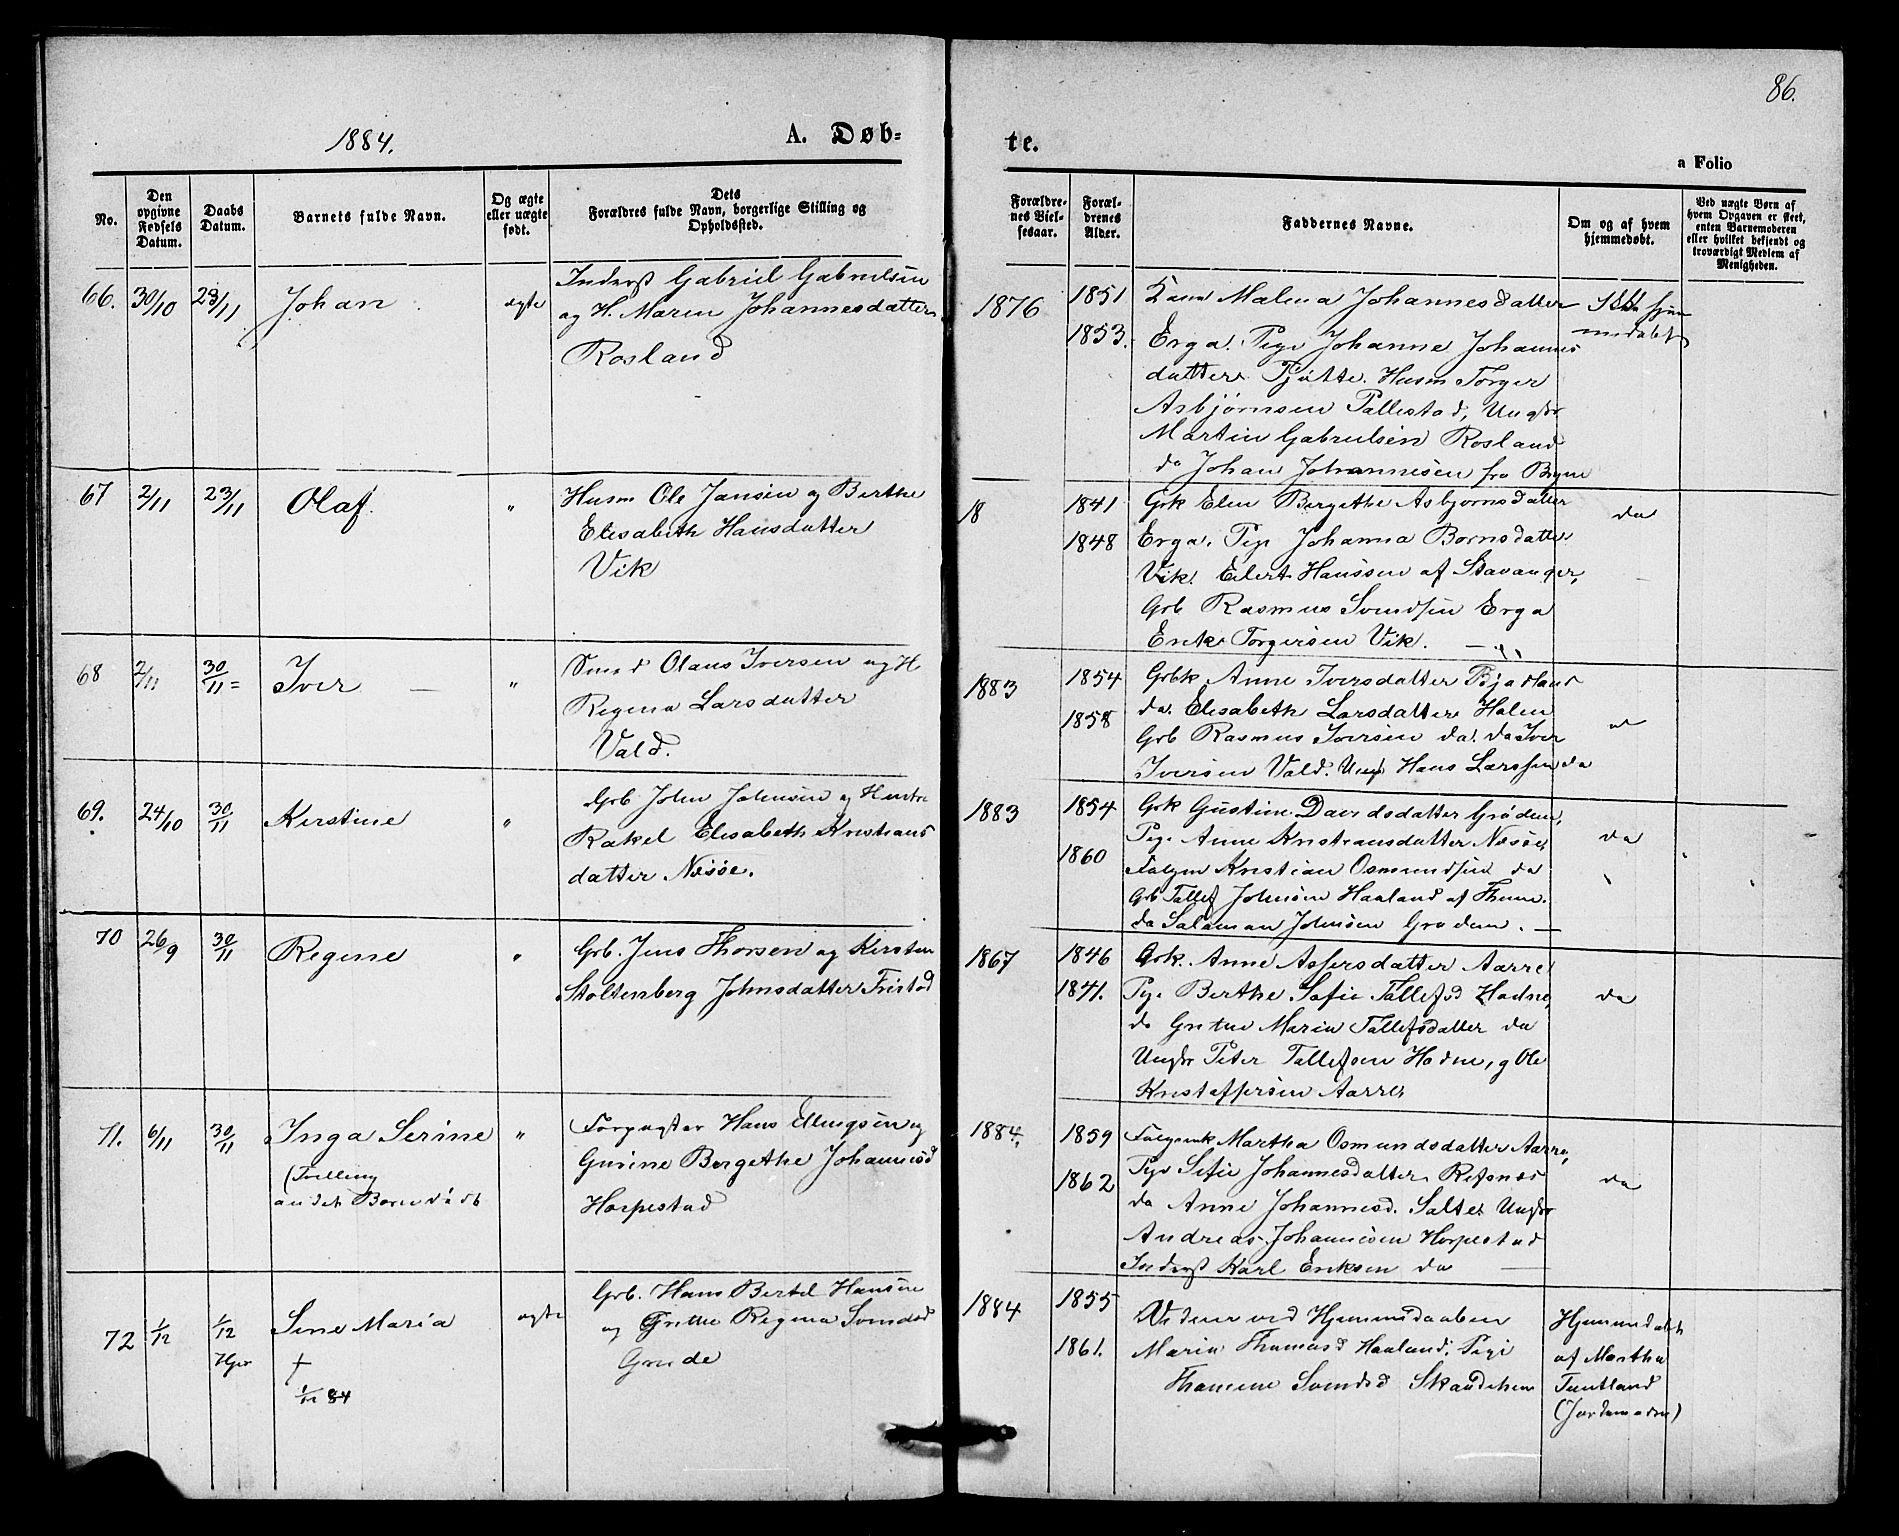 86.
1884.
A. Døb=
te.
a Folio
No.
Den opgivne Fødsels Datum.
Daabs Datum.
Barnets fulde Navn.
Og ægte eller uægte født.
Dets Forældres fulde Navn, borgerlige Stilling og Opholdssted.
Forældrenes Vielsesaar.
Forældrenes Alder.
Faddernes Navne.
Om og af hvem hjemmedøbt.
Ved uægte Børn af hvem Opgaven er skeet, enten Barnemoderen eller hvilket bekjendt og troværdigt Medlem af Menigheden.
66. 30/10 23/11 Johan ægte
Inderst Gabriel Gabrielsen
og H. Maren Johannesdatter
Rosland
1876 1851 1853.
Kone Malena Johannesdatter
Erga. Pige Johanne Johannes
datter Tjøtte. Husm Torger
Asbjørnsen Pallestad, Ungkr
Martin Gabrielsen Rosland
do Johan Johannesen fra Bryne
Ikke hjem
medøbt
67 2/11 23/11 Olaf. "
Husm Ole Jansen og Berthe
Elisabeth Hansdatter
Vik
18 1841 1848
Grk Elen Bergithe Asbjørnsdatter
Erga. Pige Johanna Bornsdatter
Vik. Eilert Hanssen af Stavanger,
Grb Rasmus Svendsen Erga
Erik Torgersen Vik. — " —
do
68 2/11 30/11 = Iver — "
Smed Olaus Iversen og H
Regina Larsdatter
Vald.
1883 1854 1858
Grbk. Anne Iversdatter Bjorland
do. Elisabeth Larsdatter Holen
Grb Rasmus Iversen do. do Iver
Iversen Vald. Ungk Hans Larssen do
do
69. 24/10 30/11 Kirstine "
Grb John Johnsen og Hustru
Rakel Elisabeth Kristians
datter Næsøe.
1883 1854 1860
Grk Gustine Davidsdatter Grødem,
Pige Anne Kristiansdatter Næsøe,
Folgm Kristian Osmundsen do
Grb Tallef Johnsen Haaland af Thime.
do Salamon Johnsen Grødem. —
do
70 26/9 30/11 Regine "
Grb. Jens Thorsen og Kirsten
Stoltenberg Johnsdatter Fristad
1867 1846 1841.
Grk. Anne Assersdatter Aarre
Pige Berthe Sofie Tallefsd Hodne,
do Gretne Maria Tallefsdatter do
Ungkr Peter Tallefsen Hodne, og Ole
Kristoffersen Aarre,
do
71. 6/11 30/11 Inga Serine "
(Tvilling
andet Barn død
Forpagter Hans Ellingsen og
Gurine Bergethe Johannesd
Horpestad
1884. 1859 1862
Folgemk Martha Osmundsdatter Aarre,
Pige Sofie Johannesdatter Refsnes
do Anne Johannesd. Salte. Ungkr
Andreas Johannesen Horpestad
Inderst Karl Eriksen do —
do
72 1/12 1/12 Hjm Sine Maria ægte
†
1/12 84
Grb. Hans Bertel Hansen
og Grethe Regina Svendsd
Grude
1884 1855 1861.
Vidner ved Hjemmedaaben
Maria Thomasd Haaland. Pige
Thomine Svendsd Skaudehem
Hjemmedøbt
af Martha
Tuntland
(Jordemoder)